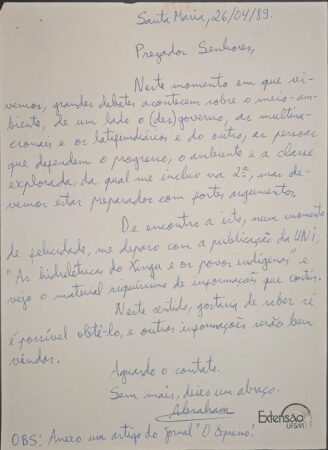 Santa Maria, 26/04/89.
Prezados Senhores,
Neste momento em que vi-
vemos, grandes debates acontecem sobre o meio-am-
biente, de um lado o (des)governo, as multina-
cionais e os latifundiários e do outro, as pessoas
que defendem o progresso, o ambiente e a classe
explorada, da qual me incluo na 2ª, mas de-
vemos estar preparados com fortes argumentos
De encontro a isto, num momento
de felicidade, me deparo com a publicação da UNI,
"As hidrelétricas do Xingu e os povos indígenas" e
vejo o material riquíssimo de informações que contém.
Neste sentido, gostaria de saber se
é possível obtê-lo, e outras informações serão bem
vindas.
Aguardo o contato.
Sem mais, deixo um abraço.
Abraham
Extensão
UFSM
OBS: Anexo um artigo do Jornal "O Sereno".